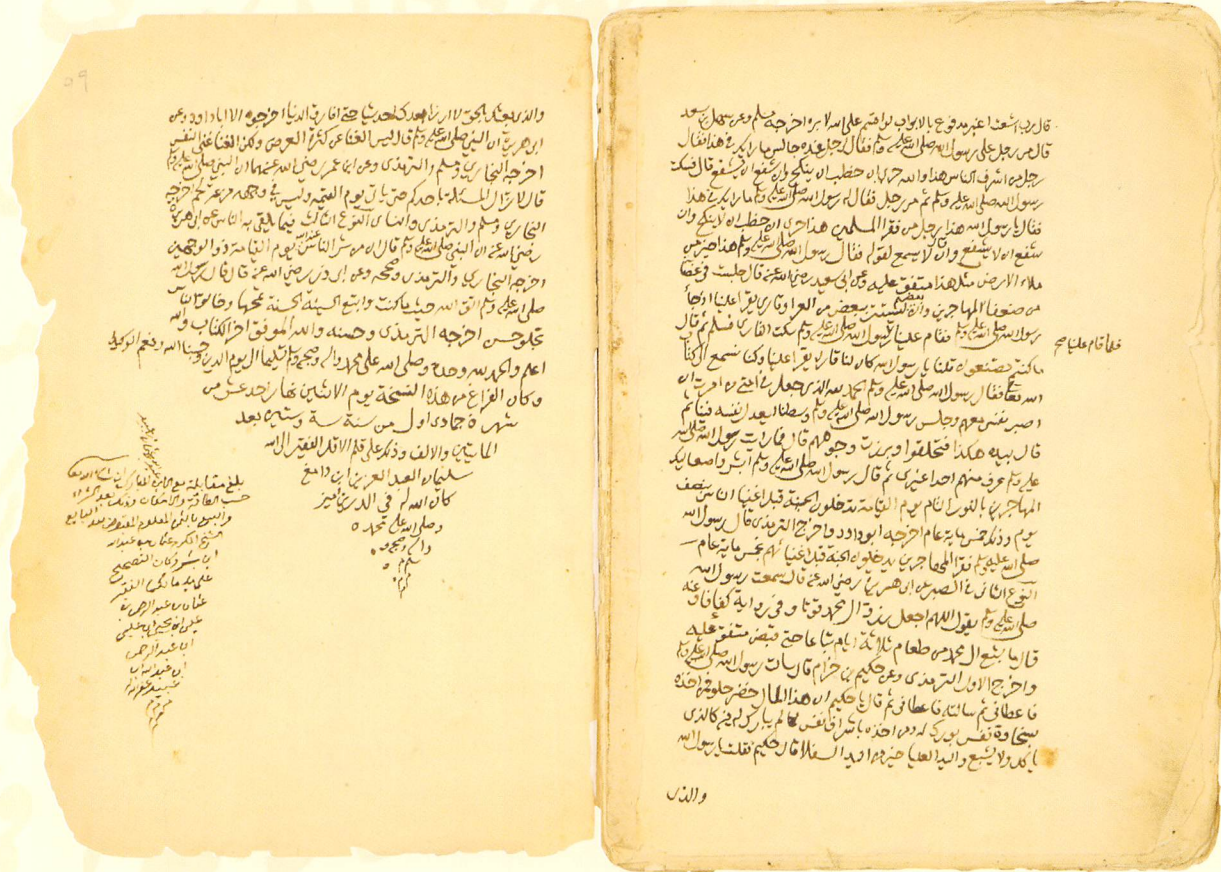 قال رب اشعث اغبر مدفوع بالابواب لو اقسم على الله لابره اخرجه مسلم وعن سهل بن سعد
قال مر رجل على رسول الله صلى الله عليه وسلم فقال لرجل عنده جالس ما رايك في هذا فقال
رجل من اشرف الناس هذا والله حري ان خطب ان ينكح وان شفع ان يشفع قال فسكت
رسول الله صلى الله عليه وسلم ثم مر رجل فقال له رسول الله صلى الله عليه وسلم ما رايك في هذا
فقال يا رسول الله هذا رجل من فقرا المسلمين هذا حري ان خطب ان لا ينكح وان
شفع ان لا يشفع وان قال لا يسمع لقوله فقال رسول الله صلى الله عليه وسلم هذا خير من
ملاء الارض مثل هذا متفق عليه وعن ابي سعيد رضي الله عنه قال جلست في عصابة
من ضعفا المهاجرين وان بعضهم ليستتر ببعض من العرا وقاري يقرا علينا اذ جا
رسول الله صلى الله عليه وسلم فقام علينا رسول الله صلى الله عليه وسلم سكت القاري فسلم ثم قال
فلما قام علينا صح
ما كنتم تصنعون قلنا يا رسول الله كان لنا قاري يقرا علينا وكنا نسمع الى كتاب
الله تعالى فقال رسول الله صلى الله عليه وسلم الحمد لله الذي جعل في امتي من امرت ان
اصبر نفسي معهم وجلس رسول الله صلى الله عليه وسلم وسطنا ليعدل نفسه فينا ثم
قال بيده هكذا فتحلقوا وبرزت وجوههم قال فما رايت رسول الله صلى الله
عليه وسلم عرف منهم احدا غيري ثم قال رسول الله صلى الله عليه وسلم ابشروا صعاليك
المهاجرين بالنور التام يوم القيامة تدخلون الجنة قبل اغنيا الناس بنصف
يوم وذلك خمس ماية عام اخرجه ابو داود واخرج الترمذي قال رسول الله
صلى الله عليه وسلم فقرا المهاجرين يدخلون الجنة قبل اغنيائهم بخمس ماية عام
النوع الثاني في الصبر عن ابي هريرة رضي الله عنه قال سمعت رسول الله
صلى الله عليه وسلم يقول اللهم اجعل رزق ال محمد قوتا وفي رواية كفافا وعنه
قال ما شبع ال محمد من طعام ثلاثة ايام تباعا حتى قبض متفق عليه
واخرج الاول الترمذي وعن حكيم بن حزام قال سالت رسول الله صلى الله عليه وسلم
فاعطاني ثم سالته فاعطاني ثم قال يا حكيم ان هذا المال خضر حلو فمن اخذه
بسخاوة نفس بورك له فيه ومن اخذه باشراف نفس لم يبارك له فيه كالذي
ياكل ولا يشبع واليد العليا خير من اليد السفلا قال حكيم فقلت يا رسول الله
والذي
والذي بعثك بالحق لا ارزا بعدك احد شيا حتى افارق الدنيا اخرجوه الا ابا داود وعن
ابي هريرة ان النبي صلى الله عليه وسلم قال ليس الغنا عن كثرة العرض ولكن الغنا غنى النفس
اخرجه البخاري ومسلم والترمذي وعن ابن عمر رضي الله عنهما ان النبي صلى الله عليه وسلم
قال لا تزال المسئلة باحدكم حتى ياتي يوم القيمة وليس في وجهه مزعة لحم اخرجه
البخاري ومسلم والترمذي والنساي النوع الثالث فيما يلقى به الناس عن ابي هريرة
رضي الله عنه ان النبي صلى الله عليه وسلم قال ان من شر الناس عند الله يوم القيامة ذو الوجهين
اخرجه البخاري والترمذي وصححه وعن ابي ذر رضي الله عنه قال قال رسول الله
صلى الله عليه وسلم اتق الله حيث ما كنت واتبع السيئة الحسنة تمحها وخالق الناس
بخلق حسن اخرجه الترمذي وحسنه والله الموفق اخر الكتاب والله
اعلم والحمد لله وحده وصلى الله على محمد واله وصحبه وسلم تسليما الى يوم الدين وحسبنا الله ونعم الوكيل
وكان الفراغ من هذه النسخة يوم الاثنين نهار احد عشر من
شهر جمادى اول من سنة ستة وستين بعد
المايتين والالف وذلك على قلم الاقل الفقير الى الله
سليمان العبد العزيز ابن دامغ
كان الله له في الدارين امين
وصلى الله على محمد
واله وصحبه
وسلم
بلغ مقابلة
حسب الطاقة والامكان وذلك بعد الشراء
والثمن المعلوم المقبوض بيد البايع
الشيخ المكرم عثمان بن عبد الله
ابن بشر وكان التصحيح
على يد مالكه الفقير
عثمان بن عبد الرحمن
علي
ابن عبد الرحمن